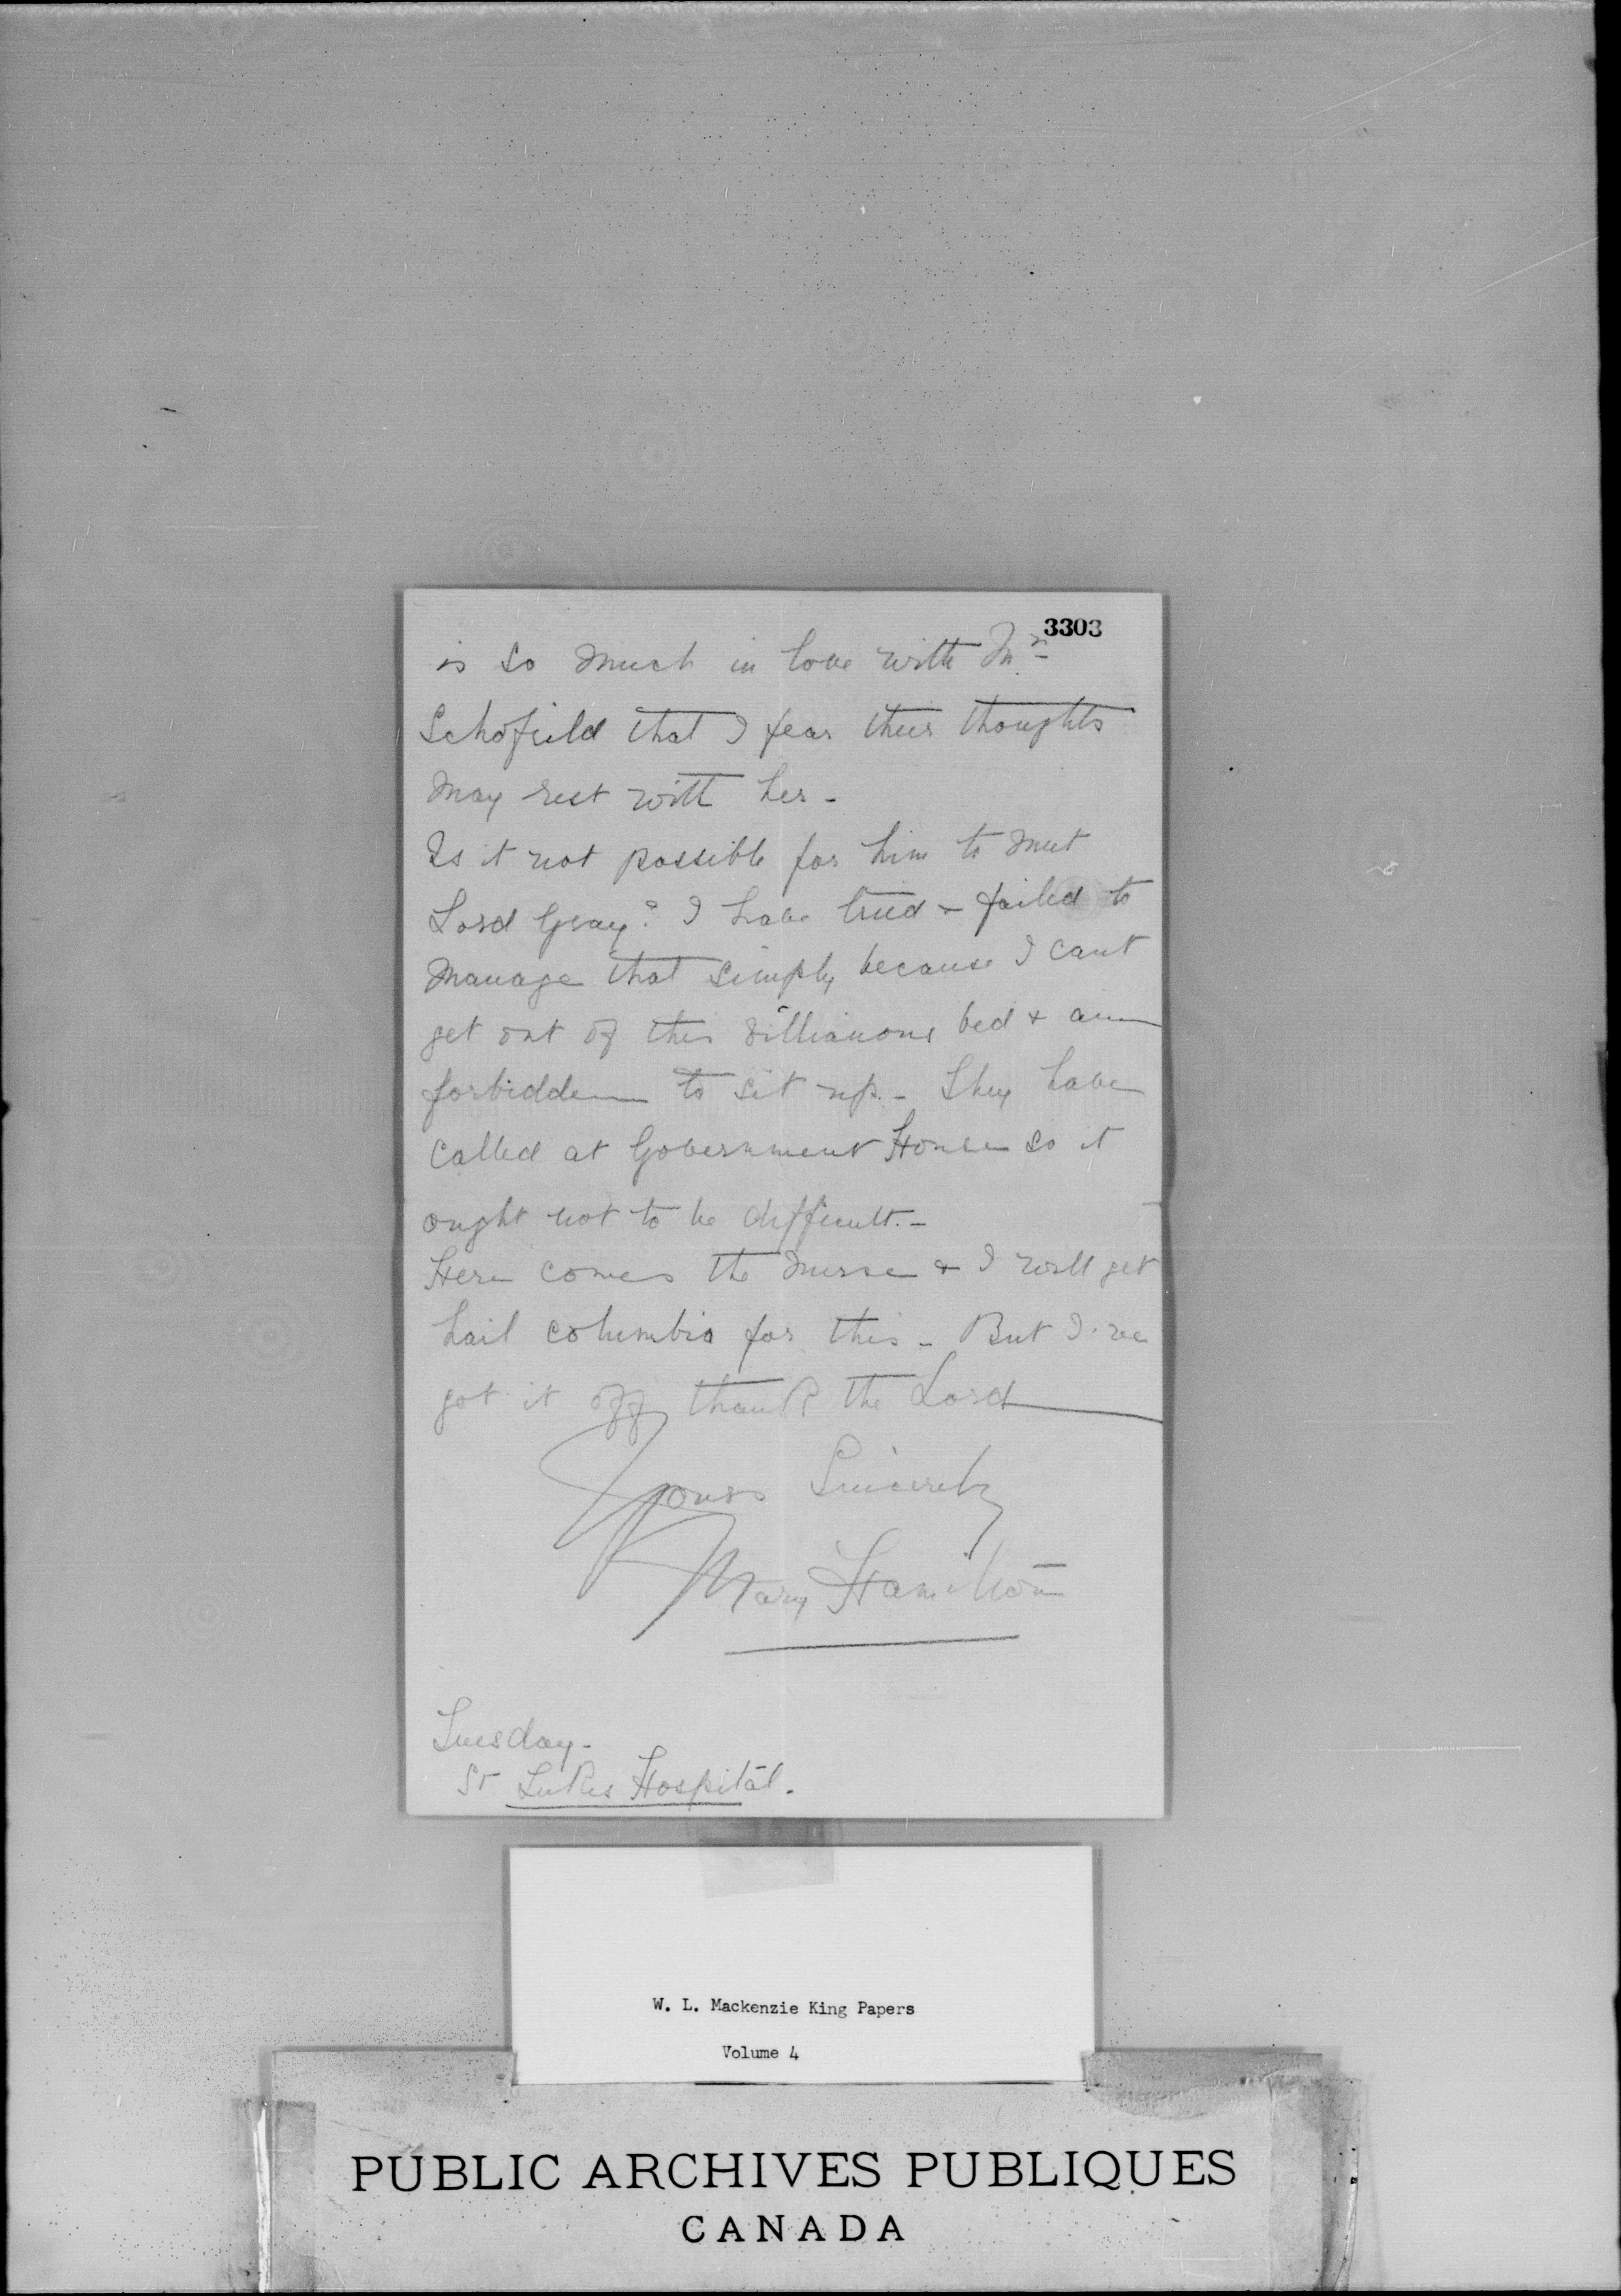 3303
is so much in love with Mrs
Schofield that I fear their thoughts
may rest with her -
Is it not possible for him to meet
Lord Grey? I have tried & failed to
manage that simply because I cant
get out of this villianous bed & am
forbidden to sit up. - They have
called at Government House so it
ought not to be difficult. -
Here comes the nurse & I will get
hail columbia for this - But I've
got it off thank the Lord
Yours Sincerely
Mary Hamilton
Tuesday -
St Lukes Hospital.
W. L. Mackenzie King Papers
Volume 4
PUBLIC ARCHIVES PUBLIQUES
CANADA